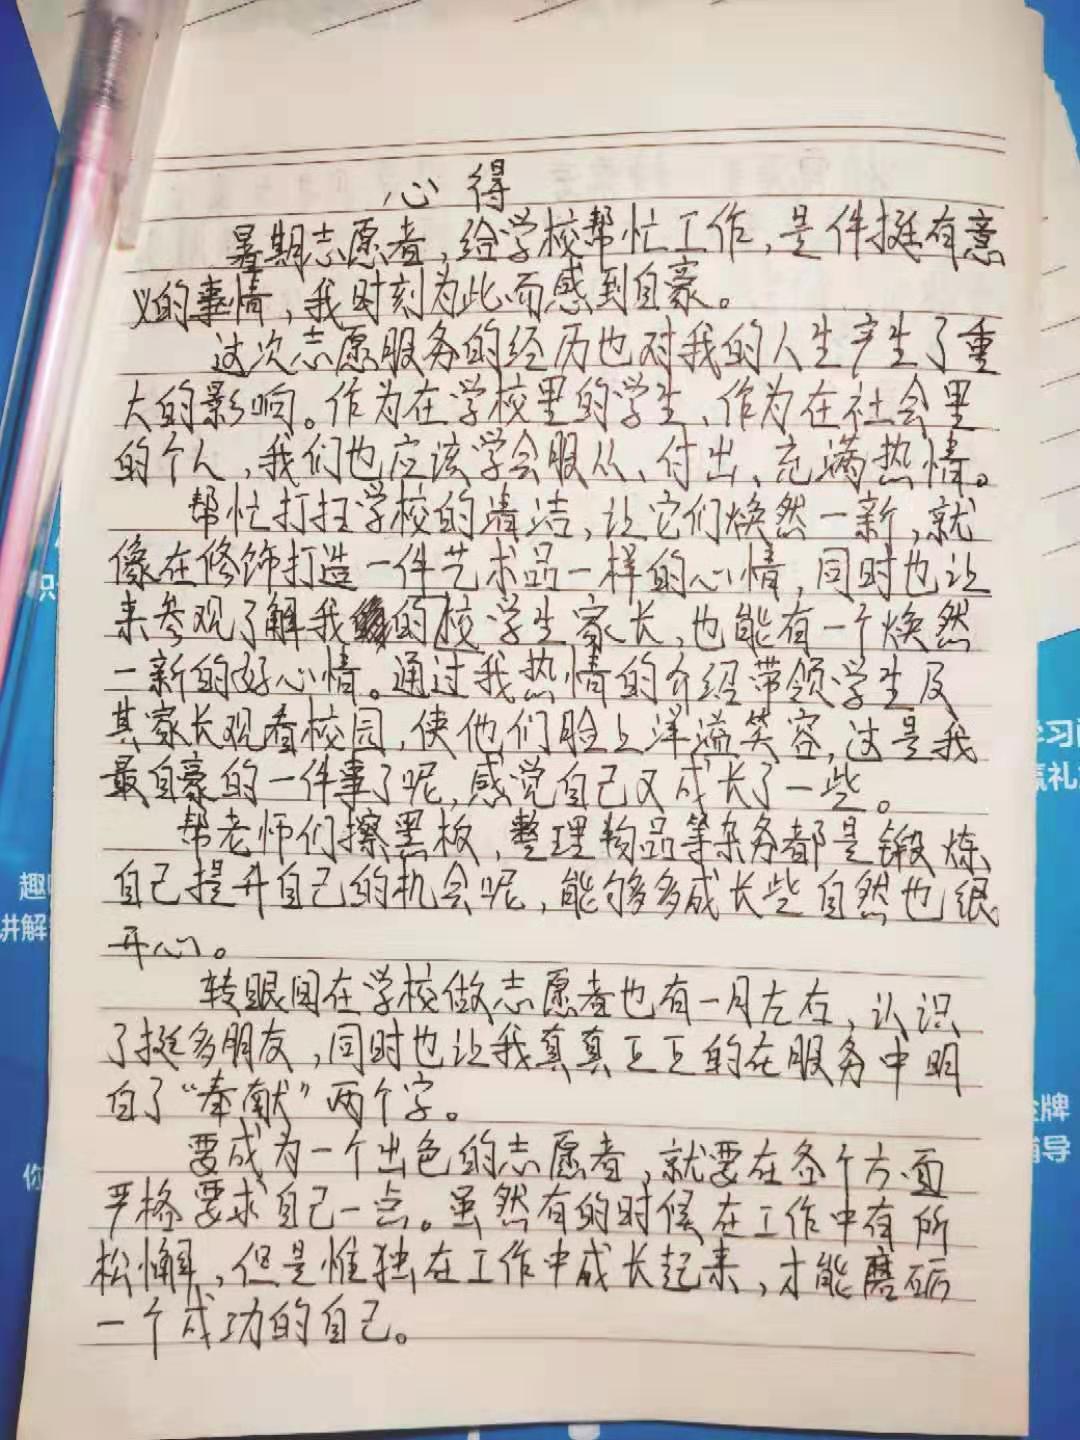 心得
暑期志愿者，给学校帮忙工作，是件挺有意
义的事情，我时刻为此而感到自豪。
这次志愿服务的经历也对我的人生产生了重
大的影响。作为在学校里的学生、作为在社会里
的个人，我们也应该学会服从、付出、充满热情。
帮忙打扫学校的清洁，让它们焕然一新，就
像在修饰打造一件艺术品一样的心情，同时也让
来参观了解我的校学生家长，也能有一个焕然
一新的好心情。通过我热情的介绍带领学生及
其家长观看校园，使他们脸上洋溢笑容，这是我
最自豪的一件事了呢，感觉自己又成长了一些。
帮老师们擦黑板，整理物品等杂务都是锻炼
自己提升自己的机会呢，能够多多成长些自然也很
开心。
转眼间在学校做志愿者也有一月左右，认识
了挺多朋友，同时也让我真真正正的在服务中明
白了“奉献”两个字。
要成为一个出色的志愿者，就要在各个方面
严格要求自己一点。虽然有的时候在工作中有所
松懈，但是惟独在工作中成长起来，才能磨砺
一个成功的自己。
学习
赢礼
趣
讲解
金牌
辅导
你